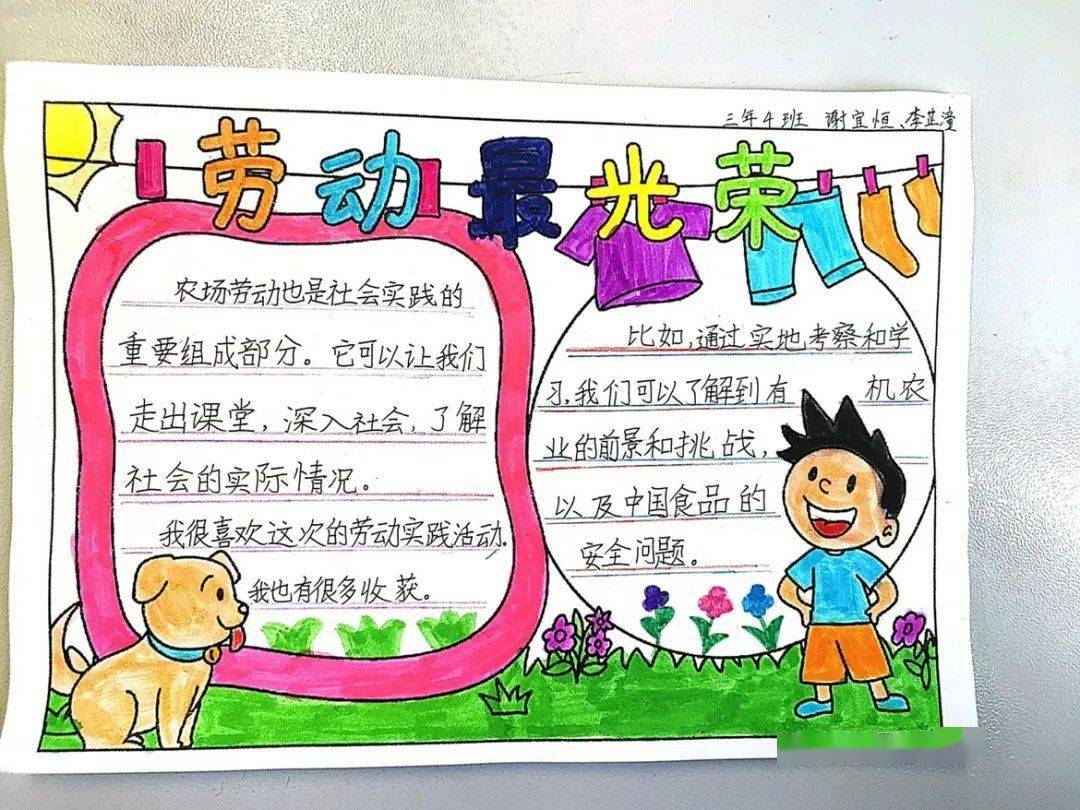 三年4班 谢宜恒、李芷潼
劳动最光荣
农场劳动也是社会实践的
重要组成部分。它可以让我们
走出课堂，深入社会，了解
社会的实际情况。
我很喜欢这次的劳动实践活动.
我也有很多收获。
比如,通过实地考察和学
习,我们可以了解到有 机农
业的前景和挑战，
以及中国食品的
安全问题。